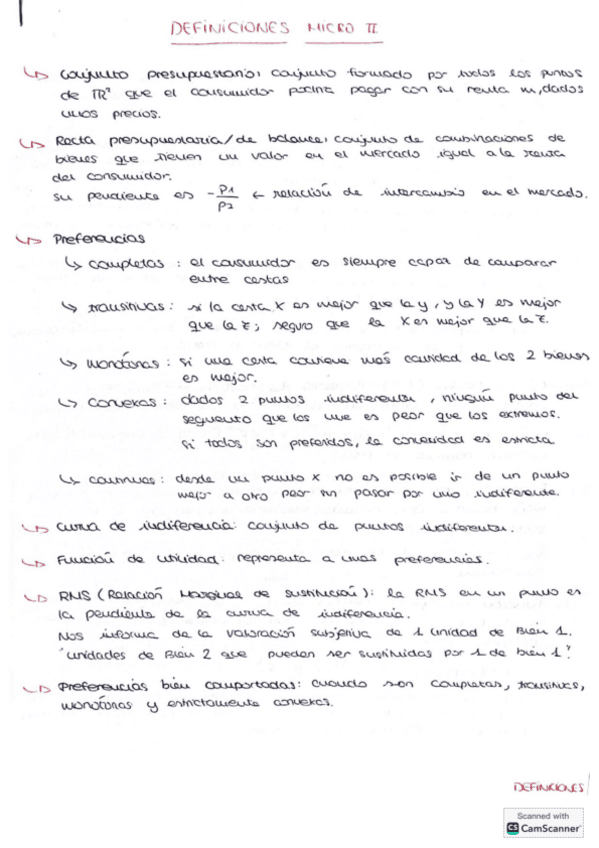 DEFINICIONES MICRO II
↳ Conjunto presupuestario: conjunto formado por todos los puntos
de R² que el consumidor podría pagar con su renta m, dados
unos precios.
↳ Recta presupuestaria/de balance: conjunto de combinaciones de
bienes que tienen un valor en el mercado igual a la renta
del consumidor.
Su pendiente es -P1/P2 ← relación de intercambio en el mercado.
↳ Preferencias
↳ completas: el consumidor es siempre capaz de comparar
entre cestas
↳ transitivas: si la cesta X es mejor que la y, y la Y es mejor
que la Z; seguro que la X es mejor que la Z.
↳ monótonas: si una cesta contiene más cantidad de los 2 bienes
es mejor.
↳ convexas: dados 2 puntos indiferentes, ningún punto del
segmento que los une es peor que los extremos.
Si todos son preferidos, la convexidad es estricta
↳ continuas: desde un punto X no es posible ir de un punto
mejor a otro peor sin pasar por uno indiferente.
↳ Curva de indiferencia: conjunto de puntos indiferentes.
↳ Función de utilidad: representa a unas preferencias.
↳ RMS (Relación Marginal de Sustitución): la RMS en un punto es
la pendiente de la curva de indiferencia.
Nos informa de la valoración subjetiva de 1 unidad de Bien 1.
"unidades de Bien 2 que pueden ser sustituidas por 1 de bien 1"
↳ Preferencias bien comportadas: cuando son completas, transitivas,
monótonas y estrictamente convexas.
DEFINICIONES
Scanned with
CS CamScanner